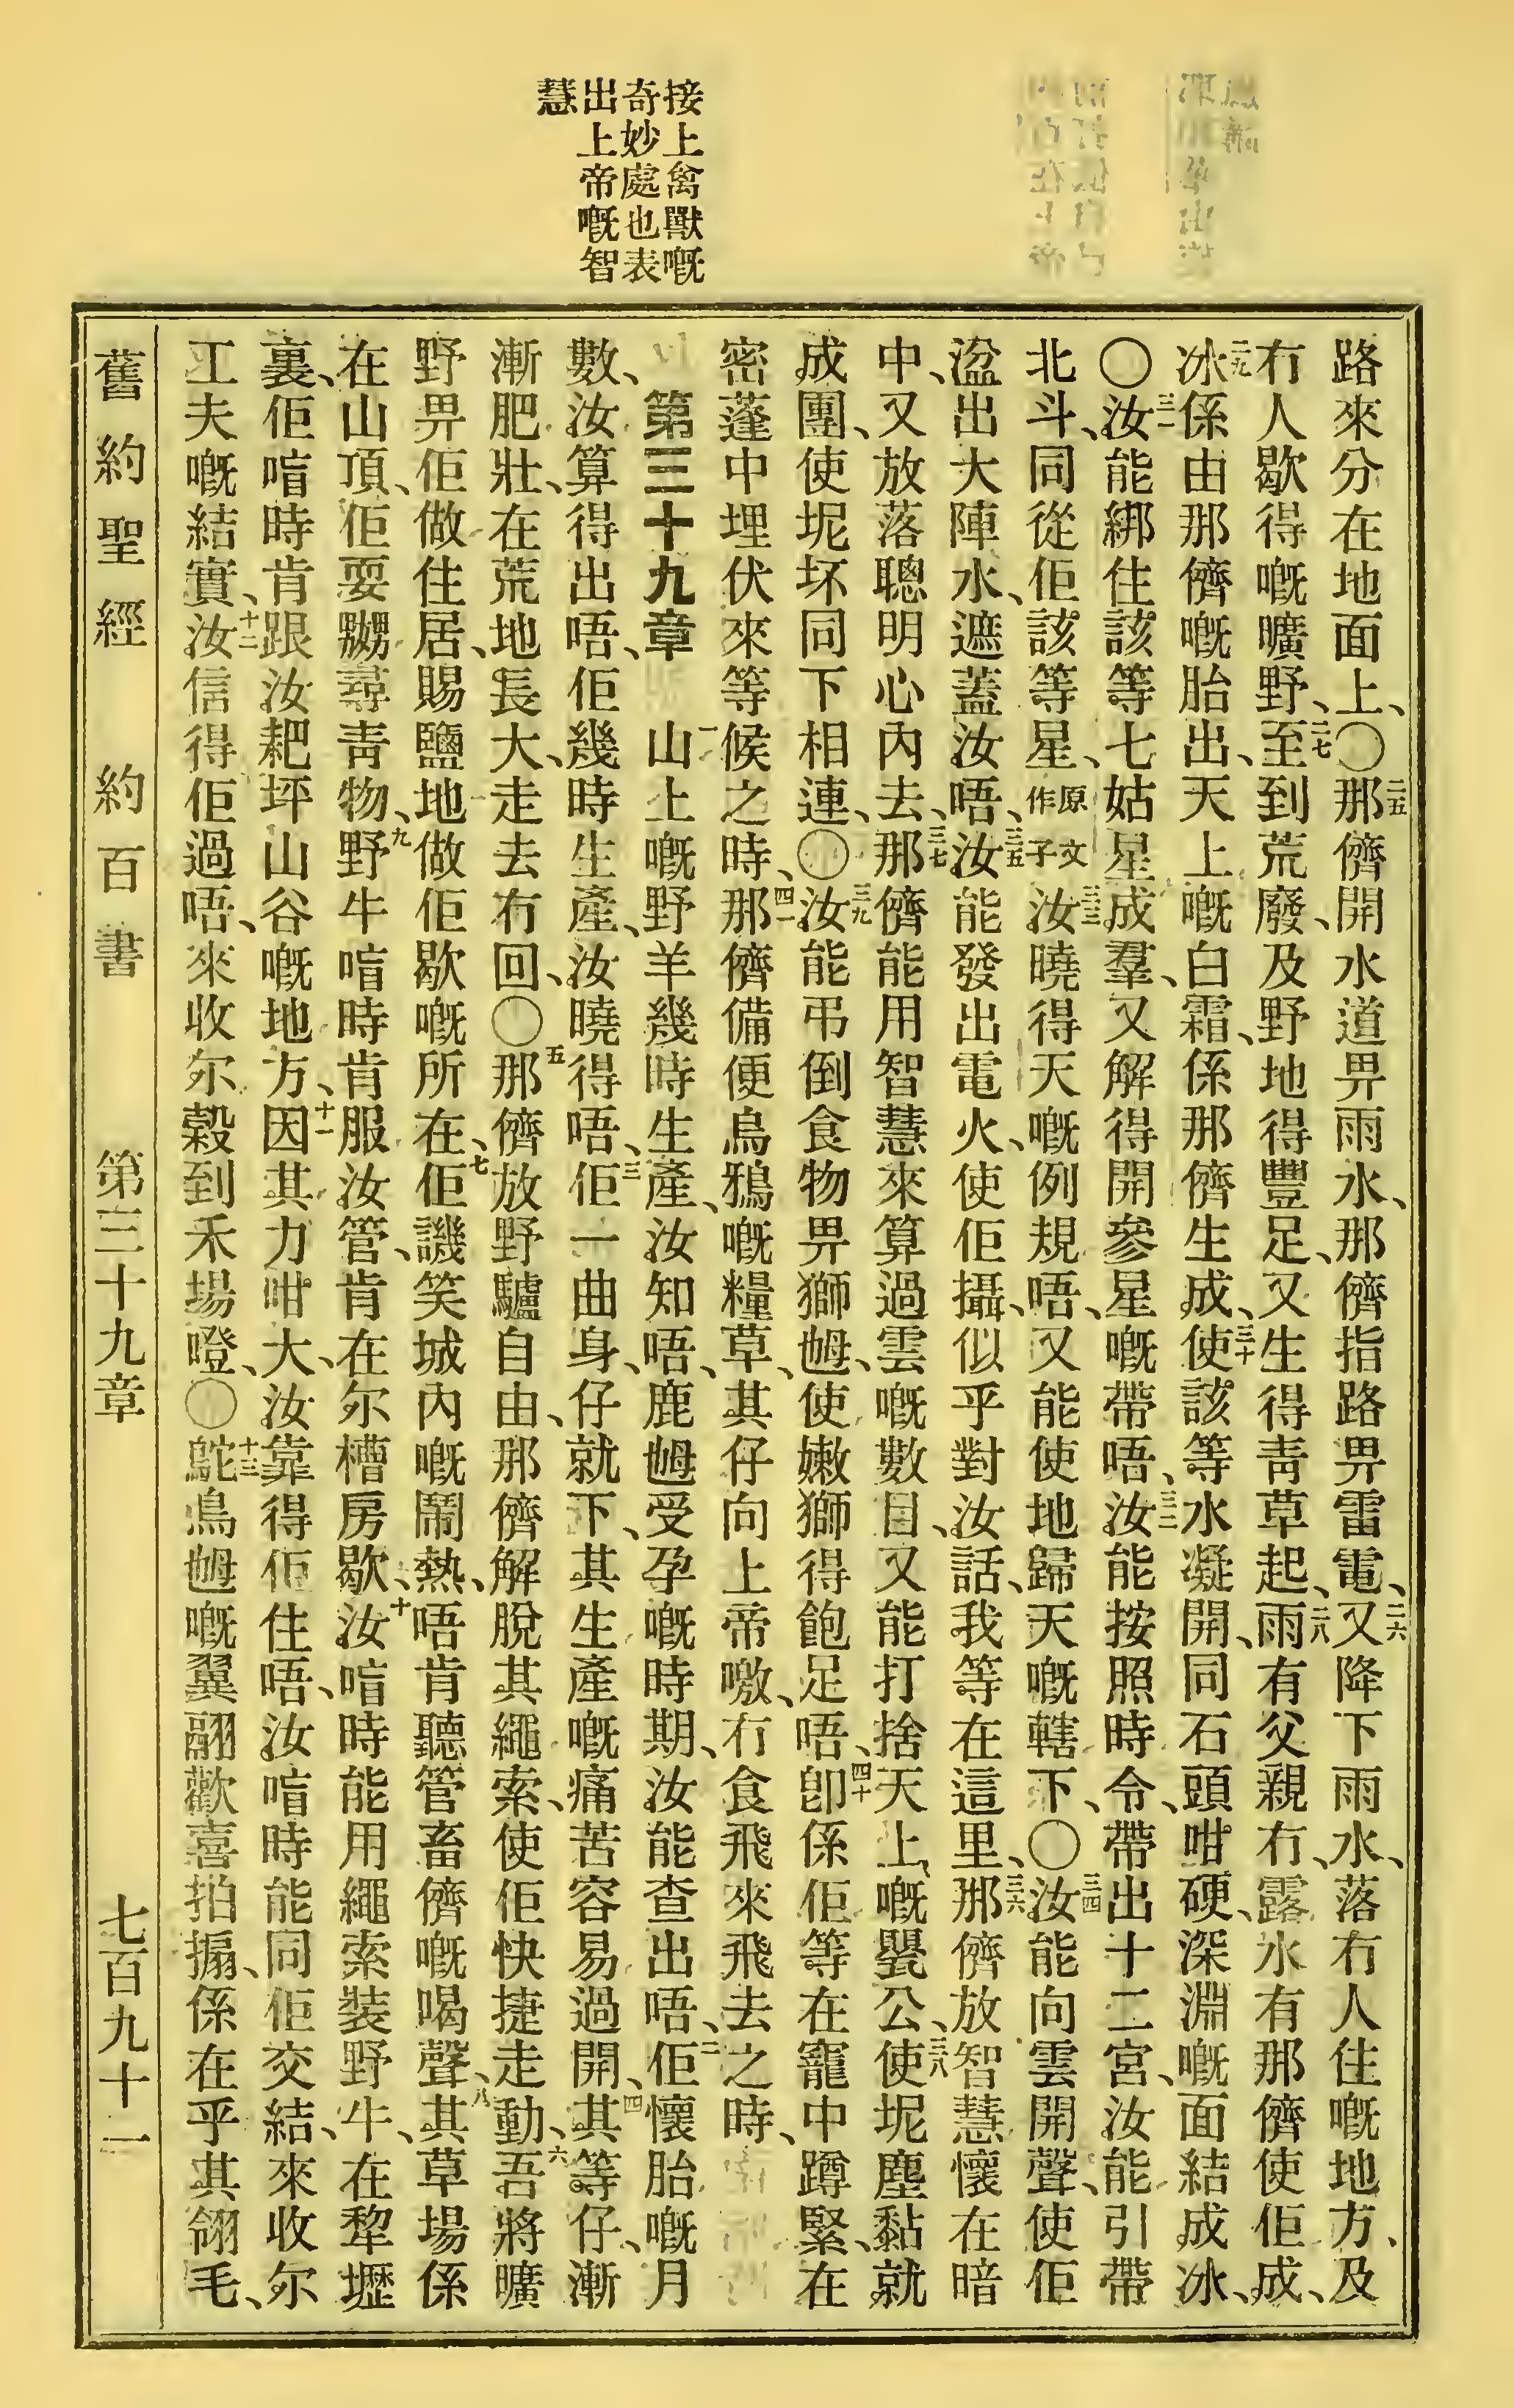 接上禽獸嘅
奇妙處也表
出上帝嘅智
慧
路來分在地面上、〇二五那儕開水道畀雨水、那儕指路畀雷電、二六又降下雨水、落冇人住嘅地方、及
冇人歇得嘅曠野、二七至到荒廢、及野地得豐足、又生得靑草起、二八雨有父親冇、露水有那儕使佢成、
二九冰係由那儕嘅胎出、天上嘅白霜、係那儕生成、三十使該等水凝開、同石頭咁硬、深淵嘅面結成冰、
〇三一汝能綁住該等七姑星成羣、又解得開參星嘅帶唔、三二汝能按照時令、帶出十二宮、汝能引帶
北斗、同從佢該等星、原文作子三三汝曉得天嘅例規唔、又能使地歸天嘅轄下、〇三四汝能向雲開聲、使佢
湓出大陣水、遮蓋汝唔、三五汝能發出電火、使佢攝、似乎對汝話、我等在這里、三六那儕放智慧懷在暗
中、又放落聰明心內去、三七那儕能用智慧來算過雲嘅數目、又能打捨天上、嘅甖公、三八使坭塵黏就
成團、使坭坏同下相連、〇三九汝能弔倒食物畀獅𡜵、使嫩獅得飽足唔、四十卽係佢等在竉中蹲緊、在
密蓬中埋伏來等候之時、四一那儕備便烏鴉嘅糧草、其仔向上帝噭、冇食飛來飛去之時、
第三十九章　一山上嘅野羊幾時生產、汝知唔、鹿𡜵受孕嘅時期、汝能查出唔、二佢懷胎嘅月
數、汝算得出唔、佢幾時生產、汝曉得唔、三佢一曲身、仔就下、其生產嘅痛苦容易過開、四其等仔、漸
漸肥壯、在荒地長大、走去冇回、〇五那儕放野驢自由、那儕解脫其繩索、使佢快捷走動、六吾將曠
野畀佢做住居、賜鹽地做佢歇嘅所在、七佢譏笑城內嘅鬧熱、唔肯聽管畜儕嘅喝聲、八其草場係
在山頂、佢耍嬲尋靑物、九野牛㫐時肯服汝管、肯在尔槽房歇、十汝㫐時能用繩索裝野牛、在犂壢
裏、佢㫐時肯跟汝耙坪山谷嘅地方、十一因其力咁大、汝靠得佢住唔、汝㫐時能同佢交結、來收尔
工夫嘅結實、十二汝信得佢過唔、來收尔穀到禾場噔、〇十三鴕鳥𡜵嘅翼翮歡喜拍搧、係在乎其翎毛、
舊約聖經　約百書　第三十九章　七百九十一